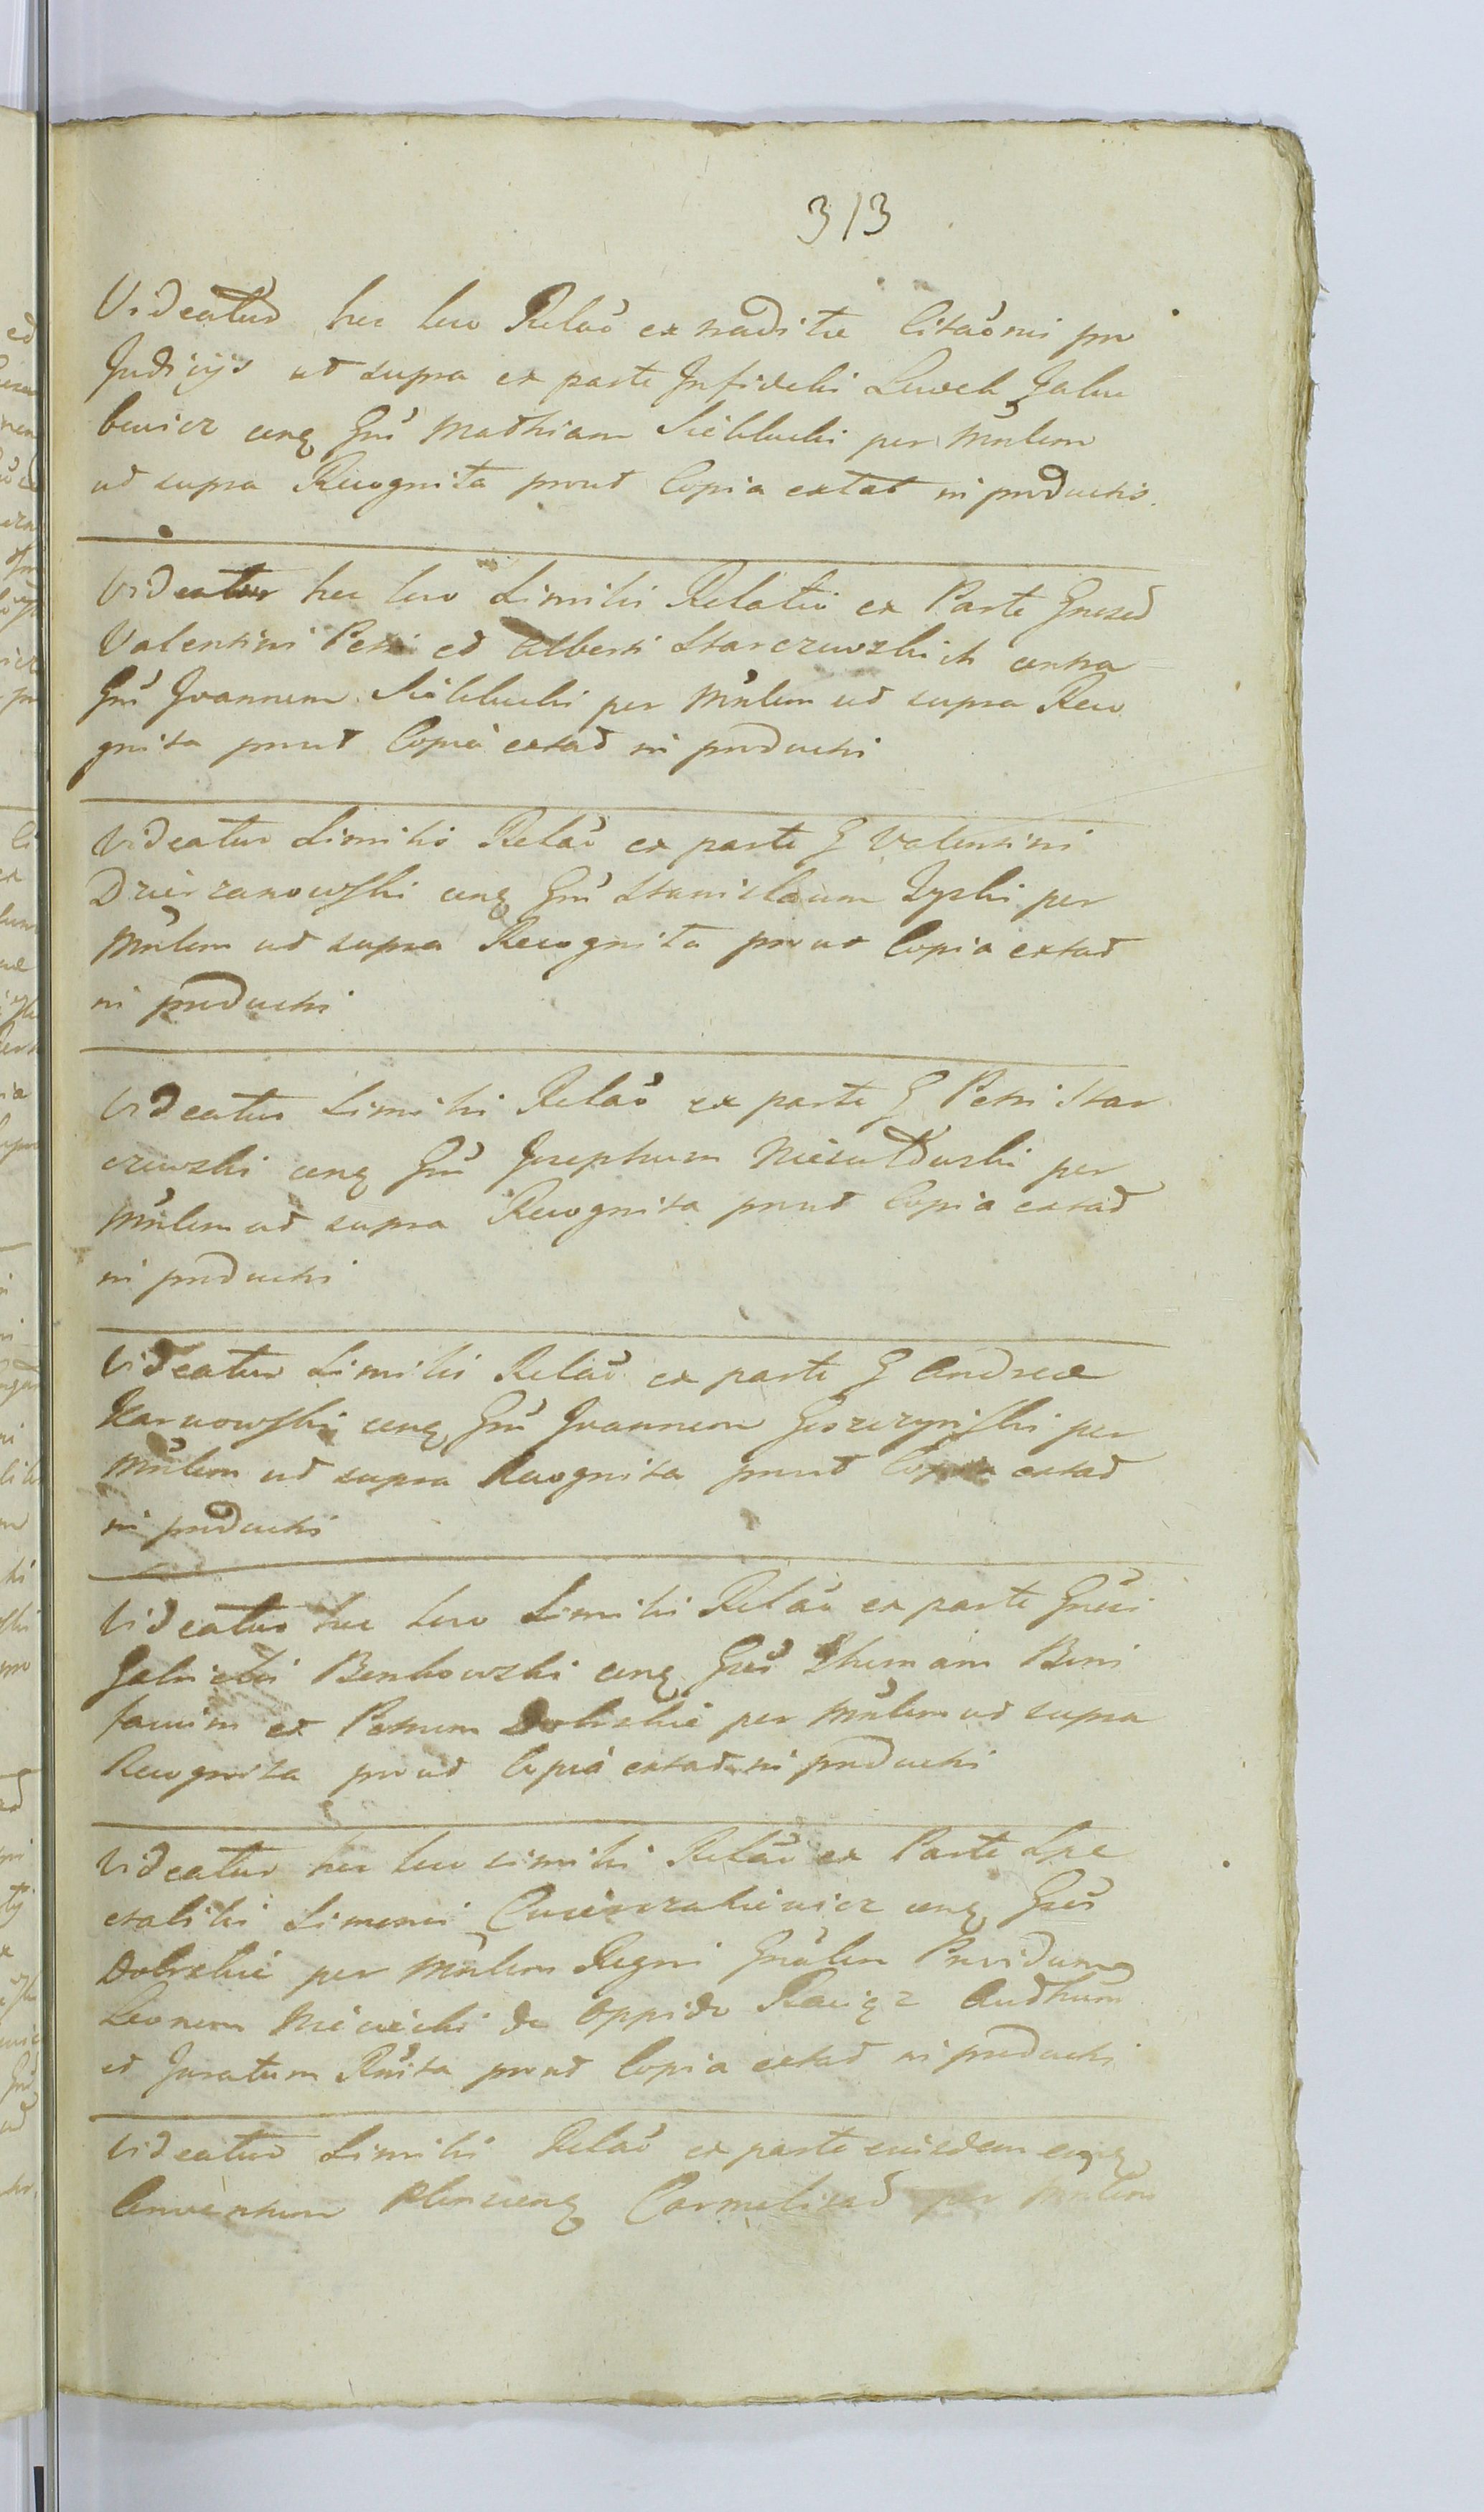 313
Videatur hec loco Relaō ex tradite Citaōnis pro
Judicijs ut supra ex parte Infidelis Lewek Jaku
bowicz conq Gnū Mathiam Sieklucki per Mnlem
ut supra Recognita prout Copia extat in productis.
Videatur hec loco Similis Relatio ex Parte Gnosod
Valentini Petri et Alberti Starczewskich contra
Gnū Joannem Sieklucki per Mnlem ut supra Reco
gnita prout Copia extat in productis
Videatur Similis Relaō ex parte G Valentini
Dzierzanowski conq Gnū Stanislaum Zyski per
Mnlem ut supra Recognita prout Copia extat
in productis
Videatur Similis Relaō ex parte G Petri Star
czewski conq Gnū Josephum per
Mnlem ut supra Recognita prout Copia extat
in productis
Videatur Similis Relaō ex parte G Andreæ
Karnowski conq Gnū Joannem per
Mnlem ut supra Recognita prout Copia extat
in productis
Videatur hec loco Similis Relaō ex parte Gnosi
Gabrielis Benkowski conq Gnōs Thomam Boni
facium et Petrum Dobrskie per Mnlem ut supra
Recognita prout Copia extat in productis
Videatur hec loco similis Relaō ex Parte Spe
ctabilis Simonis conq Gnōs
Dobrskie per Mnlem Regni Gnālem Providum
Leonem de Oppido Raciąz Authum
et Juratum Rnita prout Copia extat in productis
Videatur Similis Relaō ex parte eiusdem conq
Conventum Plonscens Carmelitad per Mnlem